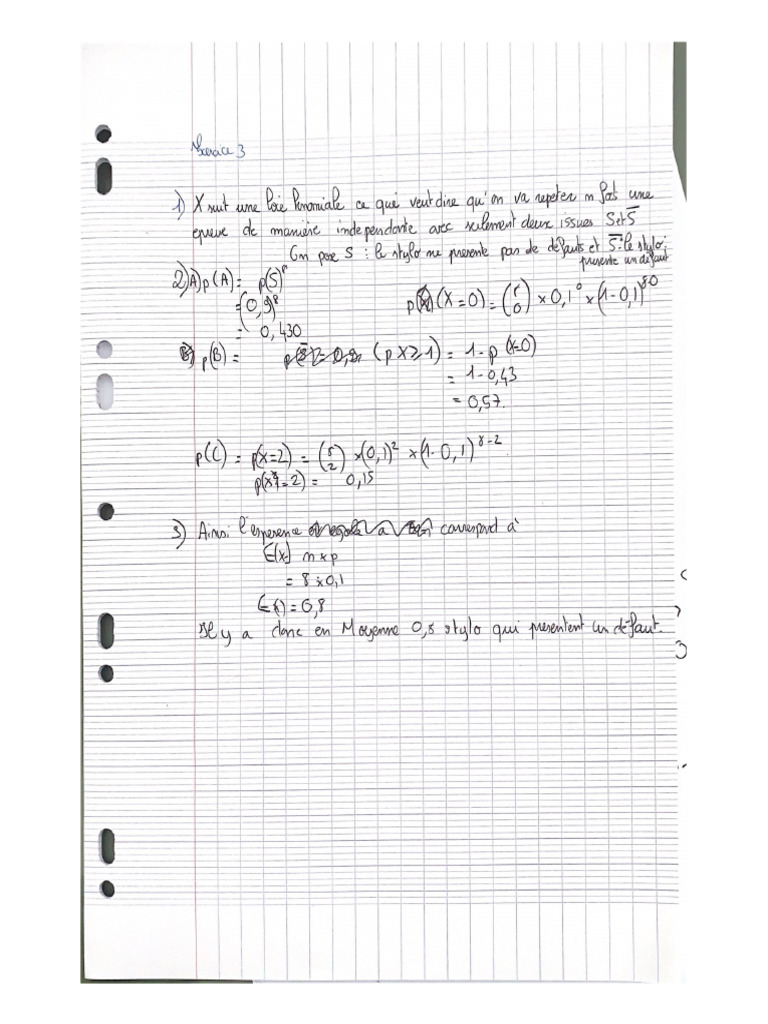 Exercice 3
1) X suit une loie binomiale ce qui veut dire qu'on va repeter n fois une
epreuve de manière independante avec seulement deux issues S et S̅
On pose S : le stylo ne presente pas de défauts et S̅ : le stylo
presente un défaut
2) A) p(A) = p(S)⁸
= (0,9)⁸ p(X=0) = (8 0) × 0,1⁰ × (1-0,1)⁸⁻⁰
= 0,430
B) p(B) = (p X ≥ 1) = 1 - p(X=0)
= 1 - 0,43
= 0,57.
p(C) = p(X=2) = (8 2) × (0,1)² × (1-0,1)⁸⁻²
p(X=2) = 0,15
3) Ainsi l'esperence correspond à
E(x) n × p
= 8 × 0,1
E(x) = 0,8
Il y a donc en Moyenne 0,8 stylo qui presentent un défaut.